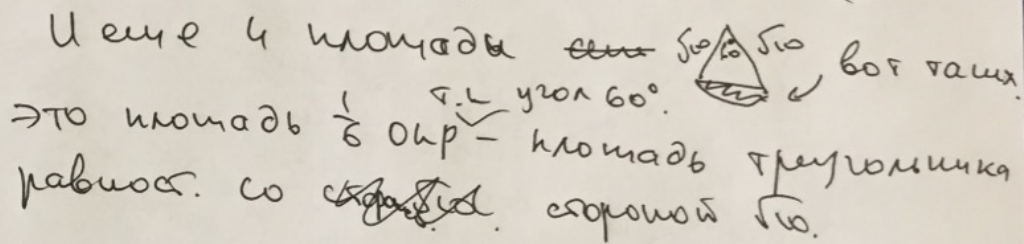 И еще 4 площади √10 60 √10 вот таких.
Это площадь 1/6 окр – площадь треугольника т.к угол 60°.
равност. со стороной √10.